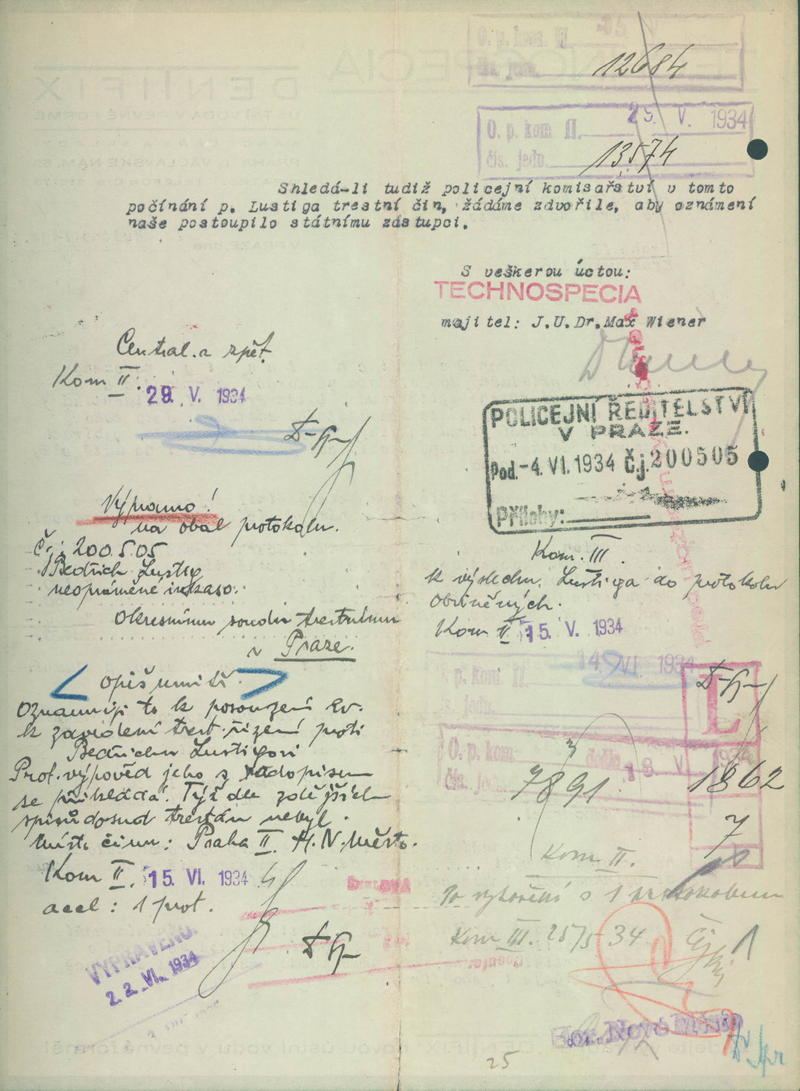 O. p. kom. II.
čís. jedn. 12684
25. V. 1934
O. p. kom. II.
čís. jedn. 13574
Shledá-li tudiž policejní komisařství v tomto
počínání p. Lustiga trestní čin, žádáme zdvořile, aby oznámení
naše postoupilo státnímu zástupci.
S veškerou úctou:
TECHNOSPECIA
majitel: J.U.Dr.Max Wiener
Central. a zpět.
Kom II. 29. V. 1934
POLICEJNÍ ŘEDITELSTVÍ
V PRAZE.
Pod. -4. VI. 1934 Č.j. 200505
Přílohy:
na obal protokolu.
Č.j. 200.505
Bedřich Lustig
neoprávněné inkaso.
Okresnímu soudu trestnímu
v Praze.
Kom. III.
k výslechu Lustiga do protokolu
obviněných.
Kom II. 15. V. 1934
opiš umístí
Oznamuji to k posouzení ev.
k zavedení trest. řízení proti
Bedřichu Lustigovi
Prot. výpověď jeho s
se přikládá. Týž dle zdejších
spisů dosud trestán nebyl.
Místo činu: Praha II. H. N. Město.
Kom II. 15. VI. 1934
accl: 1 prot.
VYPRAVENO
22. VI. 1934
14. VI. 1934
O. p. kom. II.
čís. jedn.
L
O. p. kom. došlo 18. V. 1934
čís. jedn. 7891
1862
7
Kom II.
s 1 protokolem
Kom III. 25/5 34
25